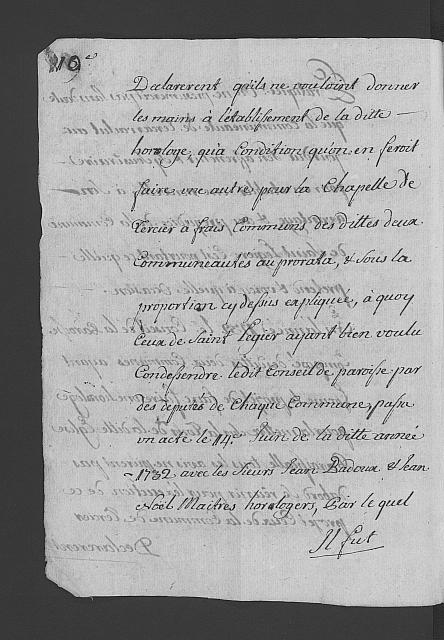 110e
Declarerent qu'ils ne vouloint donner
les mains à l'établissement de la ditte
horologe, qu'a Condition qu'on en feroit
faire une autre pour la Chapelle de
Tercier à frais Communs des dittes deux
Communeautés au prorata, & sous la
proportion cy dessus expliquée, à quoy
Ceux de Saint Legier ayant bien voulu
Condessendre le dit Conseil de paroise par
des députés de Chaque Commune, passa
un acte le 14e. Juin de la ditte année
1732 avec les Sieurs Jean Badoux & Jean
Noël Maitres horologers, Par le quel
Il fut